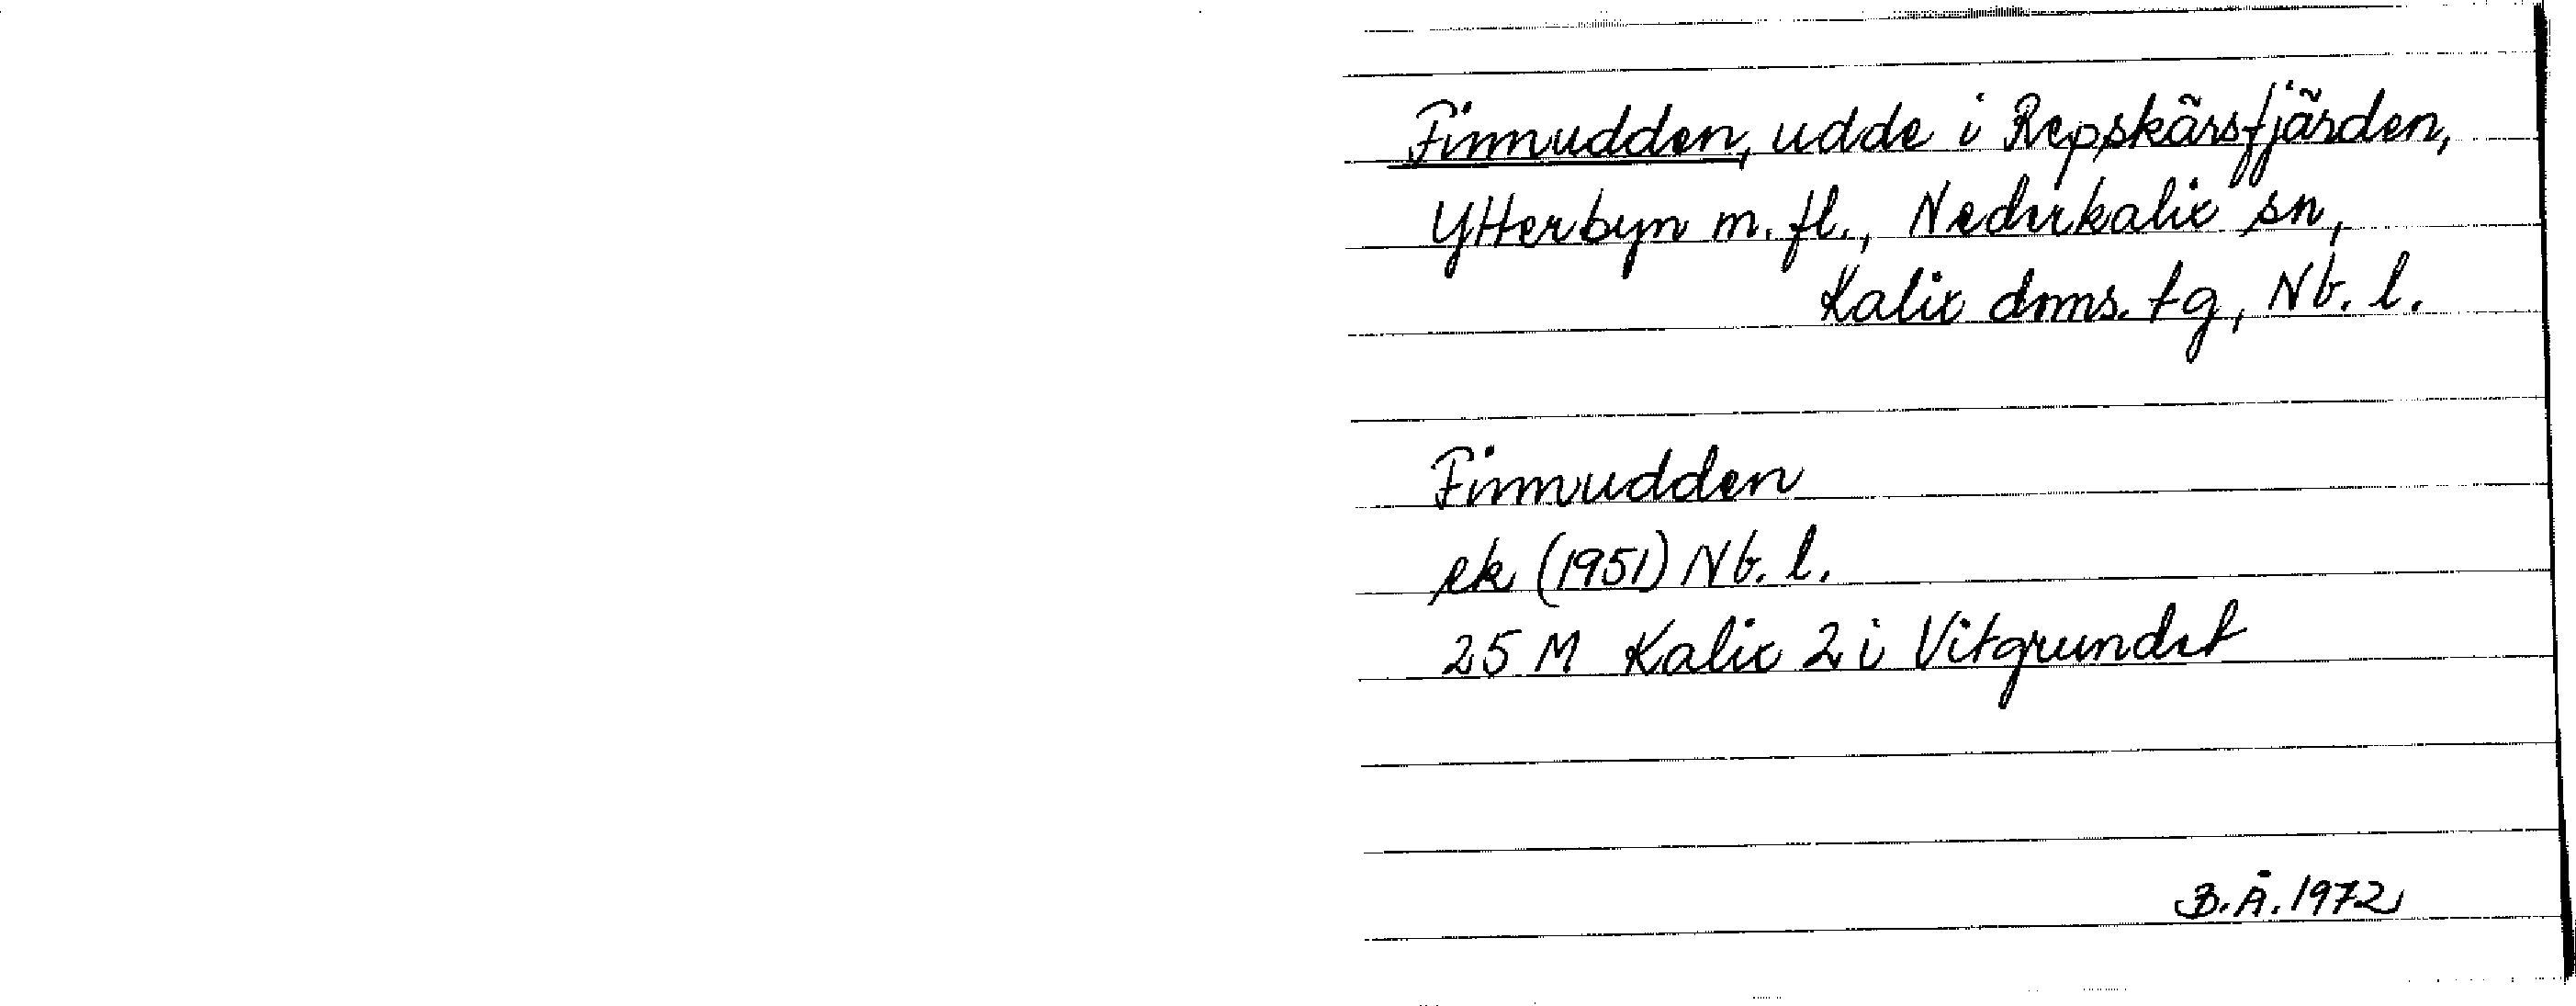 Finnudden, udde i Repskärsfjärden,
Ytterbyn m. fl., Nederkalix sn,
Kalix dms. tg, Nb. l.
Finnudden
ek (1951) Nb. l.
25 M Kalix 2 i Vitgrundet
B.Ä. 1972